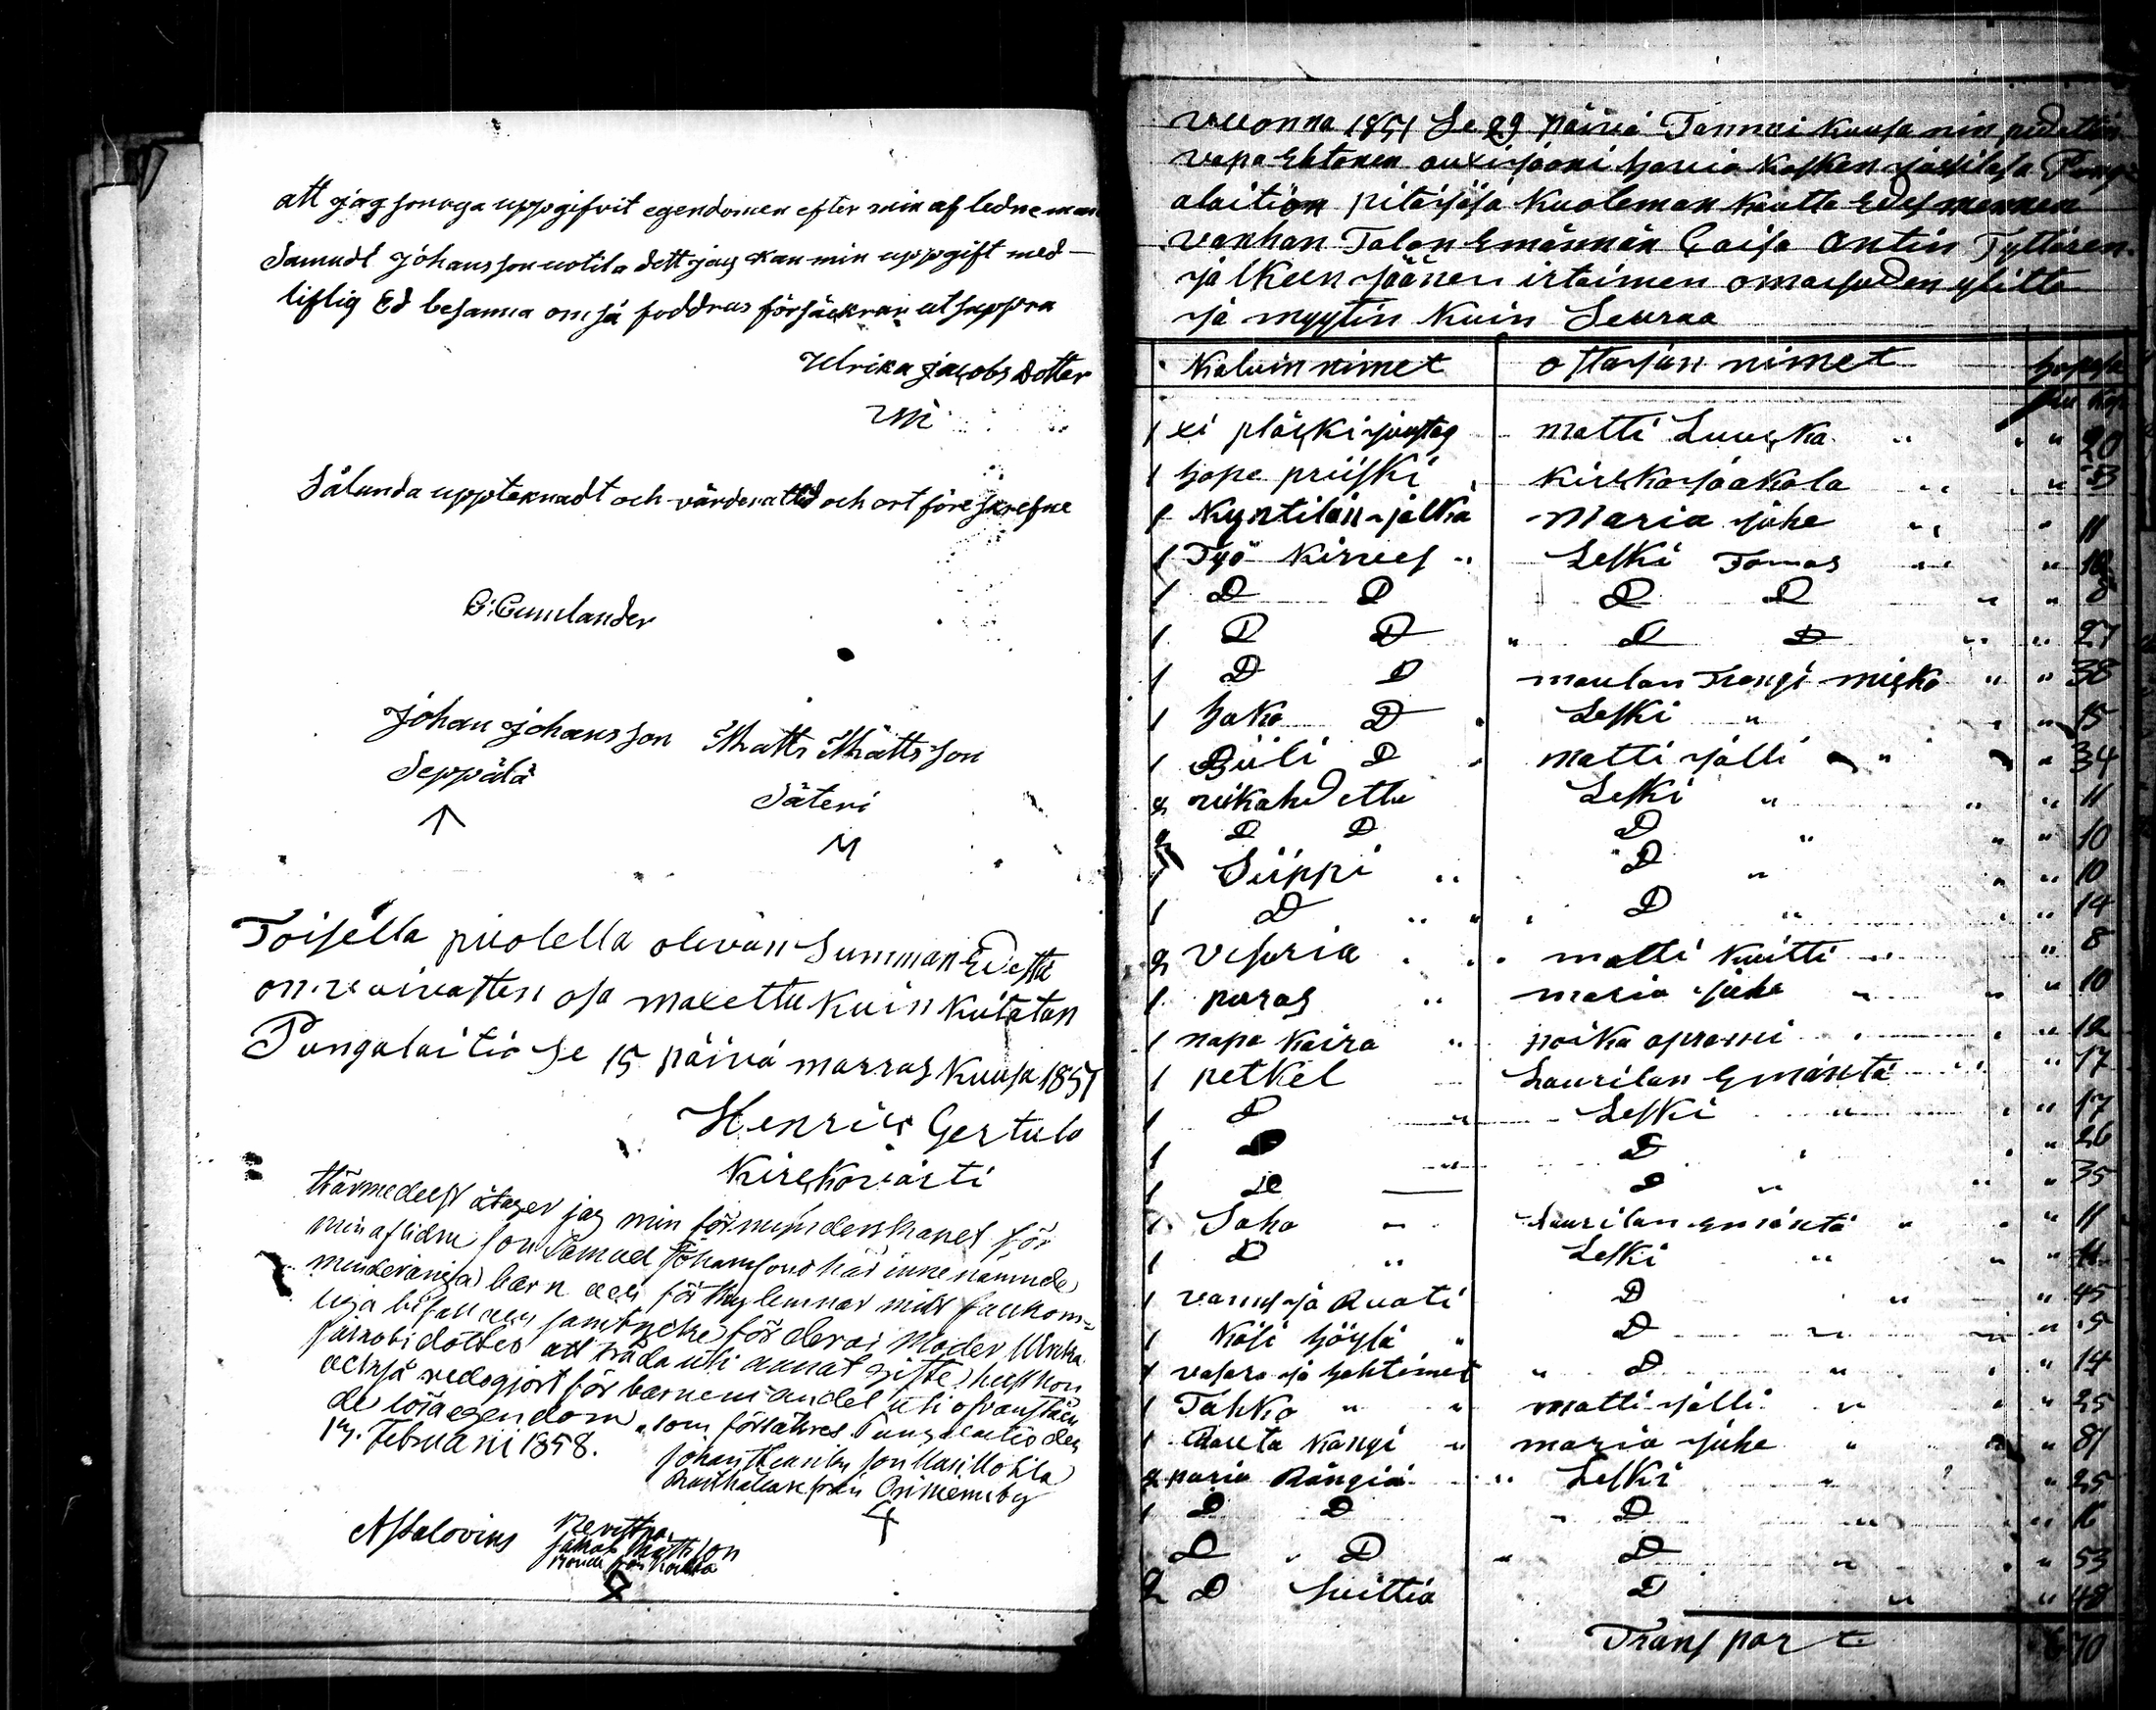 att jag sonuga uppgifvit egendomen efter min aflednc man
Samuel Johansson uotila dett jag kan min uppgift med-
liflig Ed besanna om så foddras försäkrar utsuppra
Ulrika Jacobs Dotter
Sålunda upptecknadt och värderat tid och ort föreskrefne
C: Cumlander
Johan Johansson Matts Mattsson
Seppälä
Säteri
Toisella puolella olevan Summan Edestä
on vaivasten osa maxettu kuin kuitatan
Pungalaitio Se 15 päivä marras kuusa 1857
Henric Gertulo
Kirckovärti
Härmedelst åtager jag min förmynderskapet för
min aflidne son Samuel Johanssons här inne nämnde
minderåriga barn och för thy lemnar mitt fullkom=
liga bifall och samtycke för deras Moder Ulrika
Jacobidotter att träda uti annat gifte, helst hon
också redogjort för barnens andel uti ofvanståen
de lösa egendom, som försäkras Pungalaitio den
17. Februarii 1858.
Johan Henriks son
från Orimemby
A Palovius
Bevittna
Jakob Matts son
vuonna 1857 Se 29 päivä Tammi kuusa nin pidettin
vapa Ehtonen auxisjooni haria kosken kyläsä Punga
alaition pitäjäsä kuoleman kautta Edesmennen
vanhan Talon Emännän Caisa Antin Tyttären
jälkeen jäänen irtaimen omaisuden ylitte
ja myytin kuin Seuraa
Kaluin nimet ottajan nimet hopeja
1 xi pläckisjuustag matti Luucka " " 20
1 hope priiski kirckojaakola " " 13
1 Kyntilän jalka Maria juhe " " 11
1 Työ kirves " Leski Tomas " " 10
1 D D D D " " 8
1 D D " D D " " 27
1 D D maulan Frangi micko " " 38
1 hako D Leski " " 15
1 Piili D matti jälli " " 34
2 viikahdettu Leski " " 11
2 D D D " " 10
1 Siippi " D " " 10
1 D " " D " " 14
2 Vesuria matti kuitti " " 8
1 puras " maria juhe " " 10
1 napa kaira " poika aprami " 12
1 petkel Laurilan Emäntä " " 17
1 D " Leski " " 17
1 D " D " 26
1 D D " " 35
1 Saha " Laurilan emäntä " " 11
1 D " Leski " " 11
1 vanns ja Ruoti D " " 45
1 Käsi höylä " D " " 5
1 vasara ja hohtimet " D " " 14
1 Tahko " " matti jälli " " 25
1 Rauta kangi " maria juhe " " 81
2 paria Rängiä " Leski " " 25
1 D D D " " 16
D " D " D " " 53
2 D Suittia D " " 48
Transport 6 70